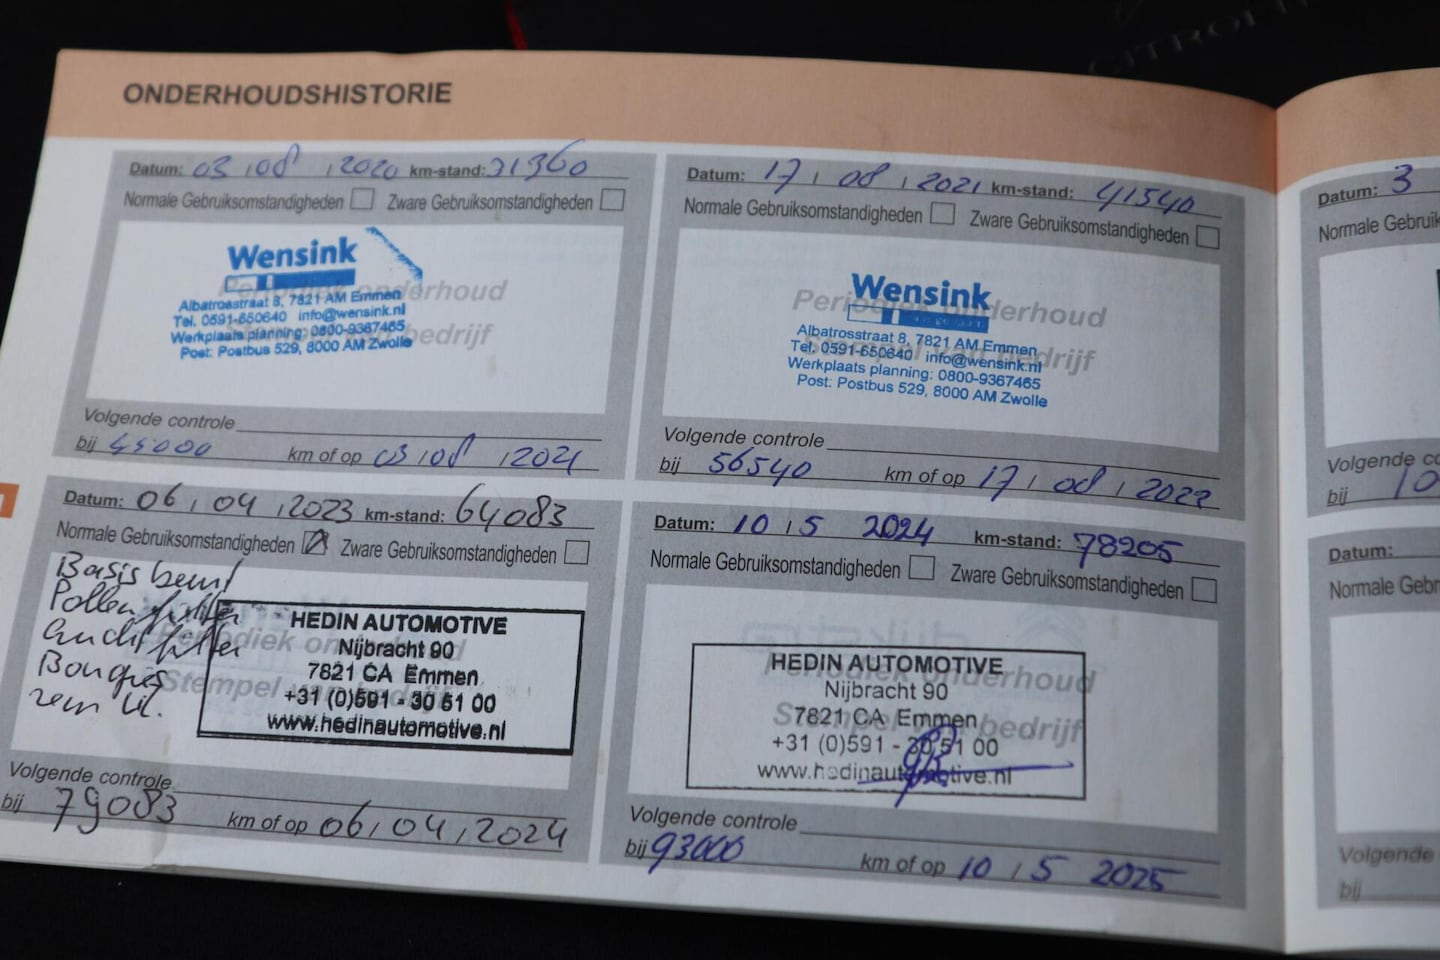 CITROËN
ONDERHOUDSHISTORIE
Datum: 03 / 08 / 2020 km-stand: 31360
Normale Gebruiksomstandigheden Zware Gebruiksomstandigheden
Wensink
Albatrosstraat 8, 7821 AM Emmen
Tel. 0591-650640 info@wensink.nl
Werkplaats planning: 0800-9367465
Post: Postbus 529, 8000 AM Zwolle
Periodiek onderhoud
Stempel van bedrijf
Volgende controle
bij 45000 km of op 03 / 08 / 2021
Datum: 17 / 08 / 2021 km-stand: 41540
Normale Gebruiksomstandigheden Zware Gebruiksomstandigheden
Wensink
Albatrosstraat 8, 7821 AM Emmen
Tel. 0591-650640 info@wensink.nl
Werkplaats planning: 0800-9367465
Post: Postbus 529, 8000 AM Zwolle
Periodiek onderhoud
Stempel van bedrijf
Volgende controle
bij 56540 km of op 17 / 08 / 2022
Datum: 06 / 04 / 2023 km-stand: 64083
Normale Gebruiksomstandigheden Zware Gebruiksomstandigheden
Basis beurt
Pollen filter
Lucht filter
Bougies
rem vl.
HEDIN AUTOMOTIVE
Nijbracht 90
7821 CA Emmen
+31 (0)591 - 30 51 00
www.hedinautomotive.nl
Periodiek onderhoud
Stempel van bedrijf
Volgende controle
bij 79083 km of op 06 / 04 / 2024
Datum: 10 / 5 2024 km-stand: 78205
Normale Gebruiksomstandigheden Zware Gebruiksomstandigheden
HEDIN AUTOMOTIVE
Nijbracht 90
7821 CA Emmen
+31 (0)591 - 30 51 00
www.hedinautomotive.nl
Periodiek onderhoud
Stempel van bedrijf
Volgende controle
bij 93000 km of op 10 / 5 2025
Datum: 3
Normale Gebruik
Volgende co
bij 10
Datum:
Normale Gebr
Volgende
bij